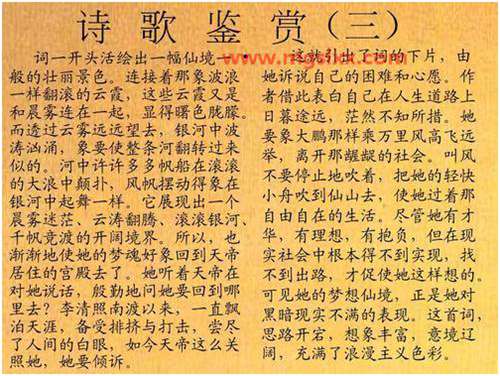 诗歌鉴赏(三)
词一开头活绘出一幅仙境一
般的壮丽景色。连接着那象波浪
一样翻滚的云霞，这些云霞又是
和晨雾连在一起，显得曙色朦胧。
而透过云雾远远望去，银河中波
涛汹涌，象要使整条河翻转过来
似的。河中许许多多帆船在滚滚
的大浪中颠扑，风帆摆动得象在
银河中起舞一样。它展现出一个
晨雾迷茫、云涛翻腾、滚滚银河、
千帆竞渡的开阔境界。所以，也
渐渐地使她的梦魂好象回到天帝
居住的宫殿去了。她听着天帝在
对她说话，殷勤地问她要回到哪
里去？李清照南渡以来，一直飘
泊天涯，备受排挤与打击，尝尽
了人间的白眼，如今天帝这么关
照她，她要倾诉。
这就引出了词的下片，由
她诉说自己的困难和心愿。作
者借此表白自己在人生道路上
日暮途远，茫然不知所措。她
要象大鹏那样乘万里风高飞远
举，离开那龌龊的社会。叫风
不要停止地吹着，把她的轻快
小舟吹到仙山去，使她过着那
自由自在的生活。尽管她有才
华，有理想，有抱负，但在现
实社会中根本得不到实现，找
不到出路，才促使她这样想的。
可见她的梦想仙境，正是她对
黑暗现实不满的表现。这首词，
思路开宕，想象丰富，意境辽
阔，充满了浪漫主义色彩。